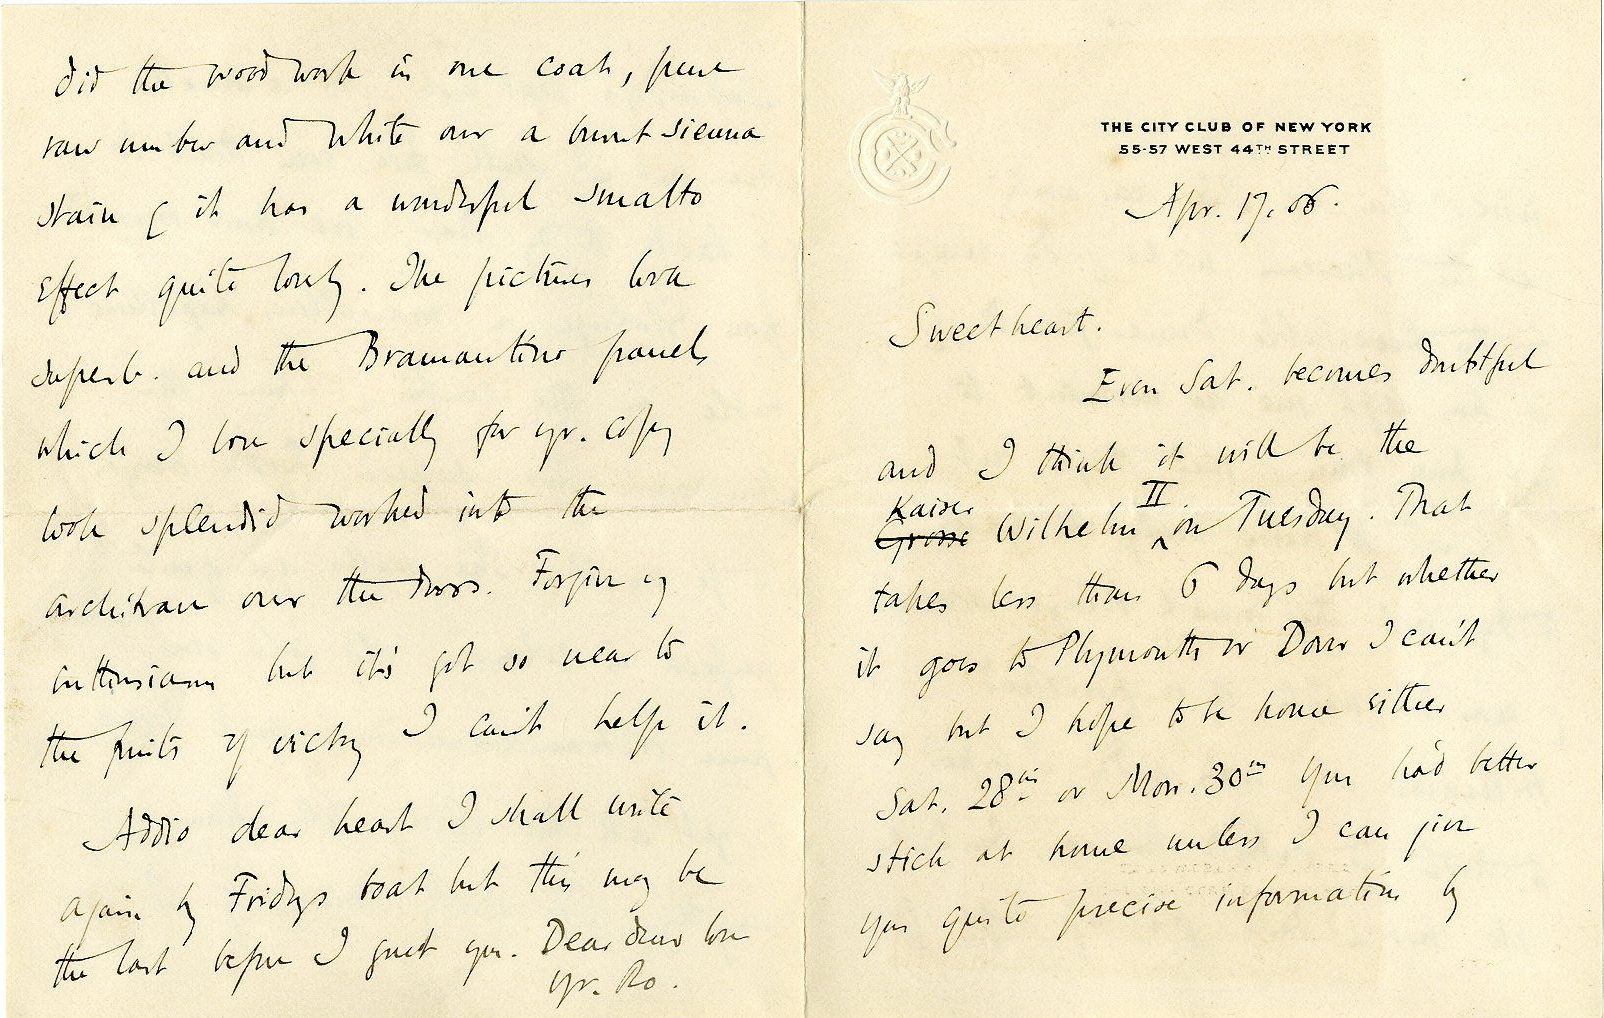 THE CITY CLUB OF NEW YORK
55-57 WEST 44TH STREET
Apr. 17. 06.
Sweetheart.
Even Sat. becomes doubtful
and I think it will be the
Kaiser II
Grosse Wilhelm ^ on Tuesday. That
takes less than 6 days but whether
it goes to Plymouth or Dover I can't
say but I hope to be home either
Sat. 28th or Mon. 30th You had better
stick at home unless I can give
you quite precise information by
did the wood work in one coat, pure
raw umber and white over a burnt sienna
stain & it has a wonderful smalto
effect quite lovely. The pictures look
superb. and the Bramantino panels
which I love specially for yr. copy
look splendid worked into the
architrave over the doors. Forgive my
enthusiasm but it's got so near to
the fruits of victory I can't help it.
Addio dear heart I shall write
again by Fridays boat but this may be
the last before I greet you. Dear dear love
yr. Ro.